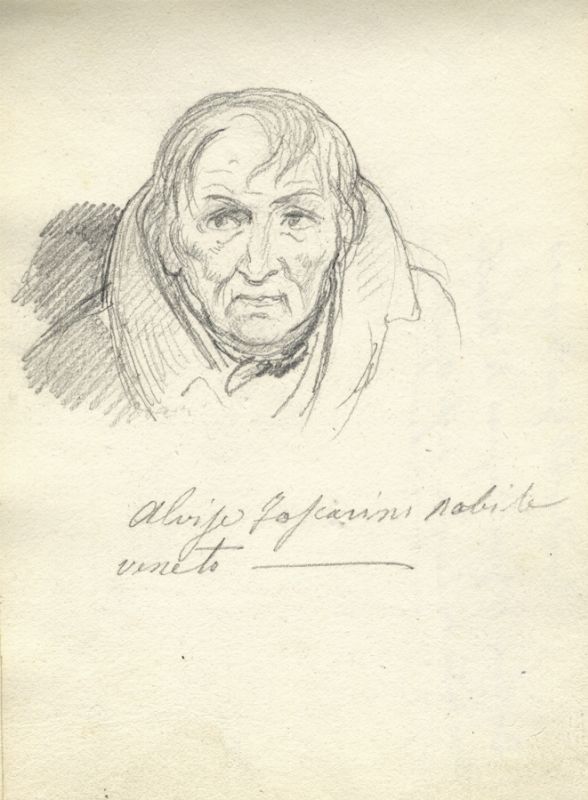 Alvise Foscarini nobile
veneto